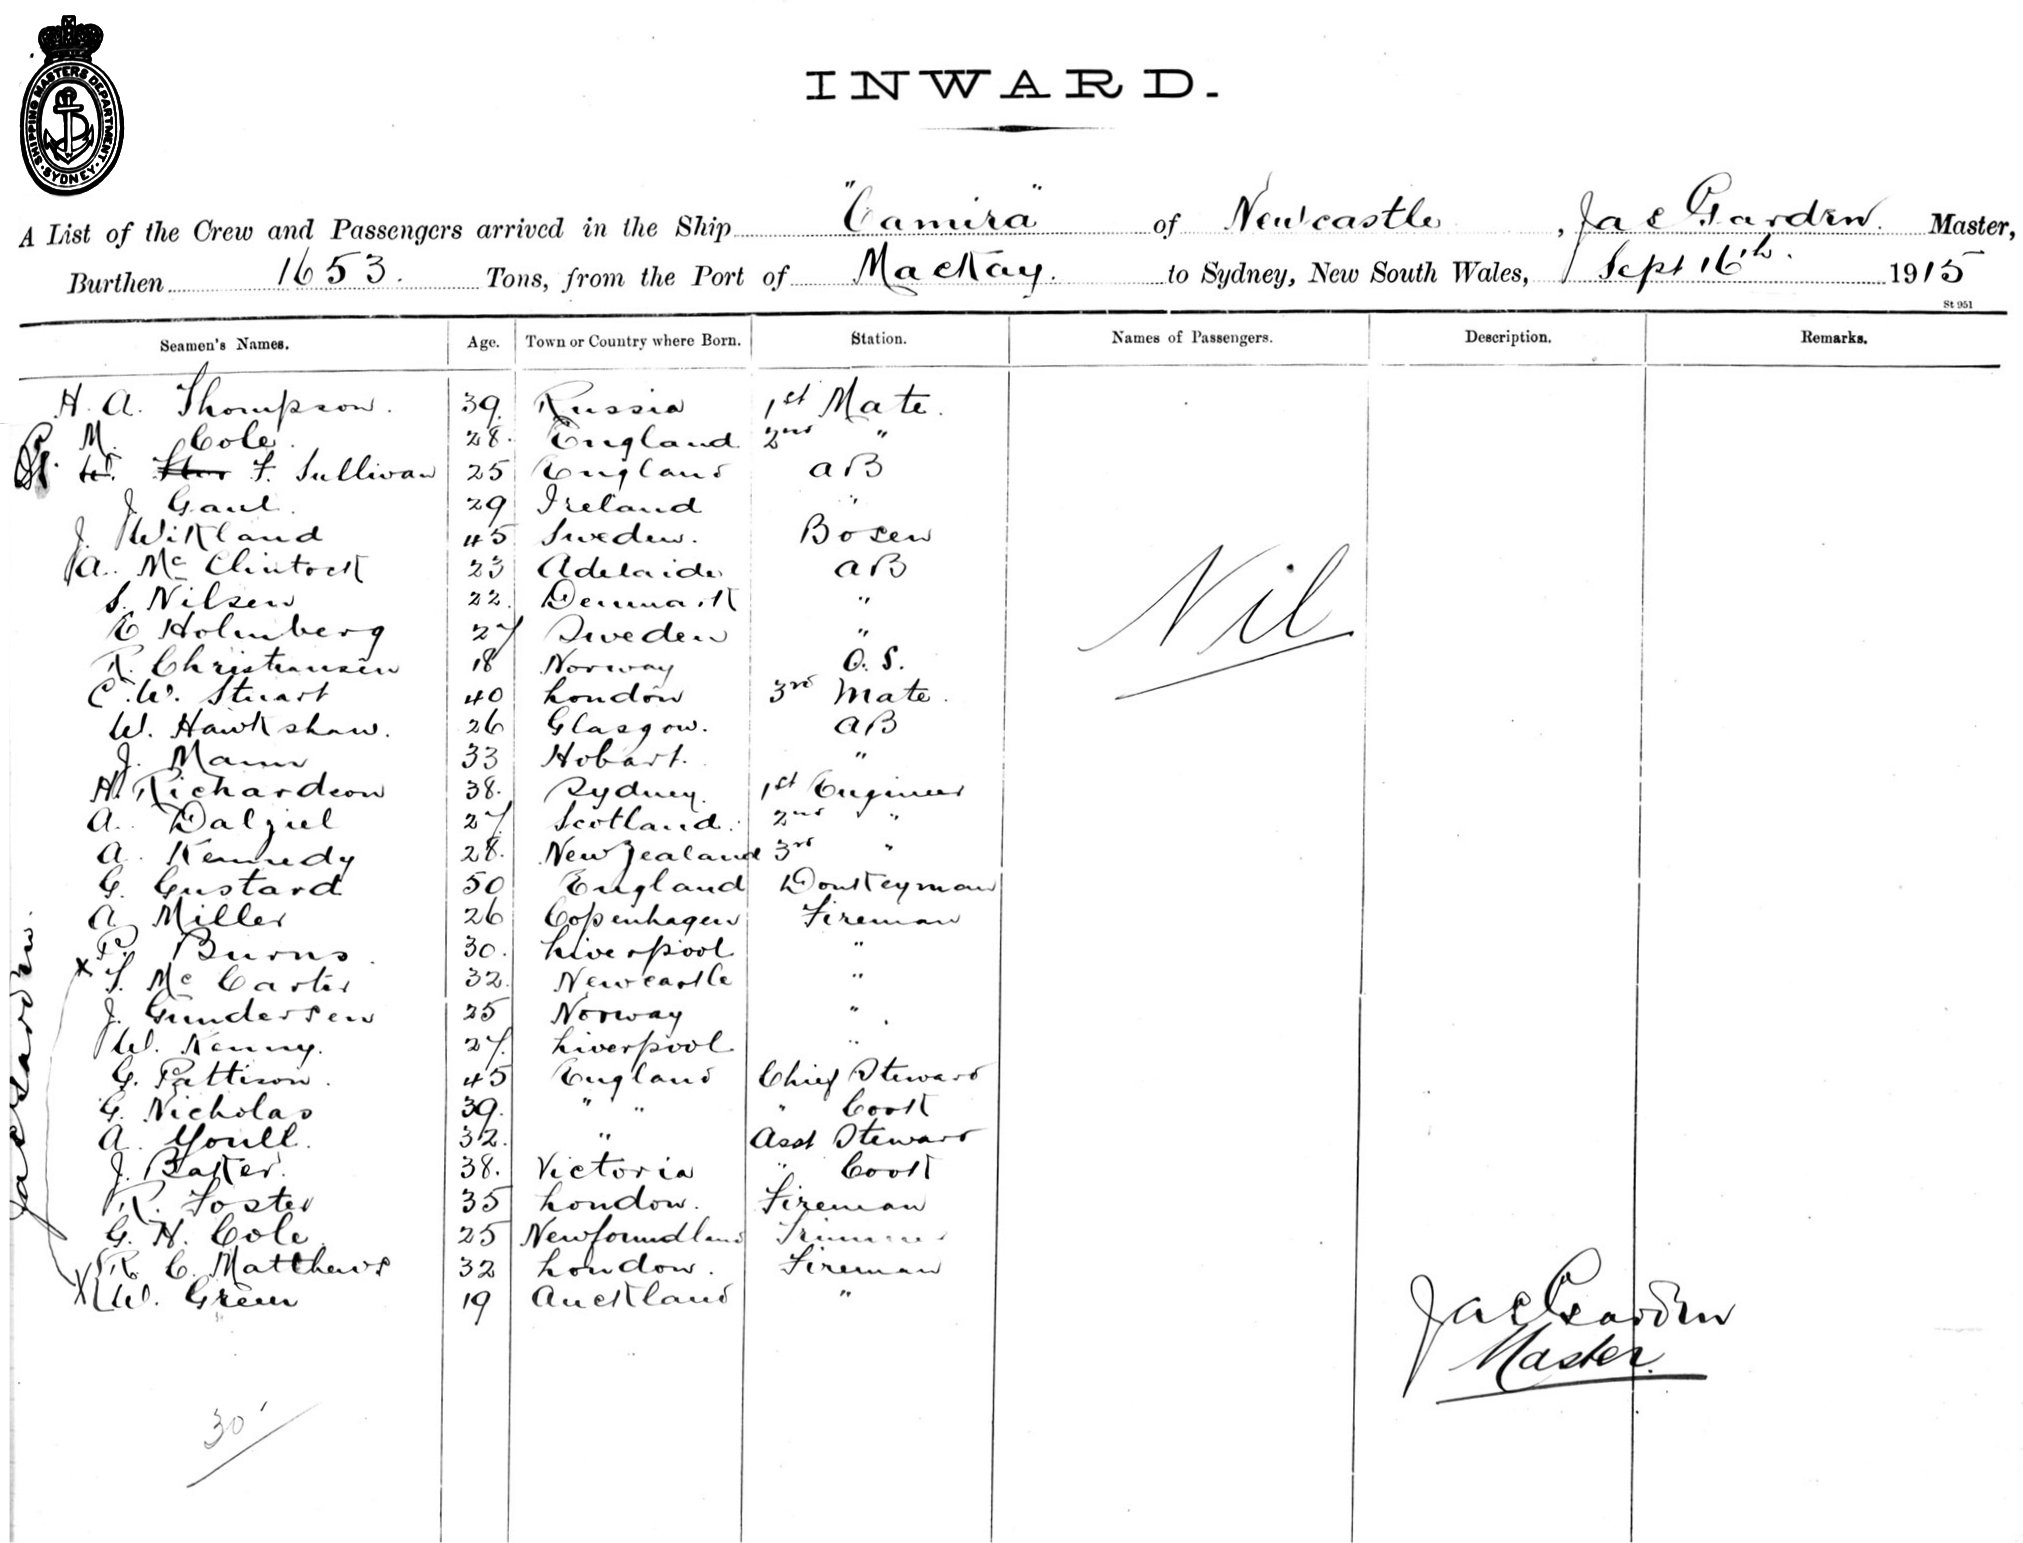 SHIPPING MASTERS DEPARTMENT. SYDNEY.
INWARD.
A List of the Crew and Passengers arrived in the Ship "Camira" of Newcastle, Jas Garden. Master,
Burthen 1653. Tons, from the Port of Mackay. to Sydney, New South Wales, Sept 16th. 1915
St 951
Seamen's Names. Age. Town or Country where Born. Station. Names of Passengers. Description. Remarks.
H. A. Thompson. 39. Russia 1st Mate.
M. Cole. 28. England 2nd "
F. Sullivan 25 England AB
J. Gaul. 29 Ireland "
J. Wikland 45 Sweden. Bosen
A. Mc Clintock 23 Adelaide AB
S. Nilsen 22. Denmark "
E Holmberg 27 Sweden "
R. Christiansen 18 Norway O.S.
C. W. Stuart 40 London 3rd Mate.
W. Hawkshaw. 26 Glasgow. AB
J. Mann 33 Hobart. "
H. Richardson 38. Sydney. 1st Engineer
A. Dalziel 27 Scotland. 2nd "
A. Kennedy 28. New Zealand 3rd "
G. Gustard 50 England Donkeyman
A. Miller 26 Copenhagen Fireman
P. Burns. 30. Liverpool "
x S. Mc Carter 32. Newcastle "
J. Gundersen 25 Norway "
W. Kenny. 27. Liverpool "
G. Pattison. 45 England Chief Steward
G. Nicholas 39. " " " Cook
A. Youll. 32. " Asst Steward
J. Baker. 38. Victoria " Cook
R. Foster 35 London. Fireman
G. H. Cole. 25 Newfoundland Trimmer
R. C. Matthews 32 London. Fireman
x W. Green 19 Auckland "
Nil
Jas Garden
Jas Garden
Master.
30